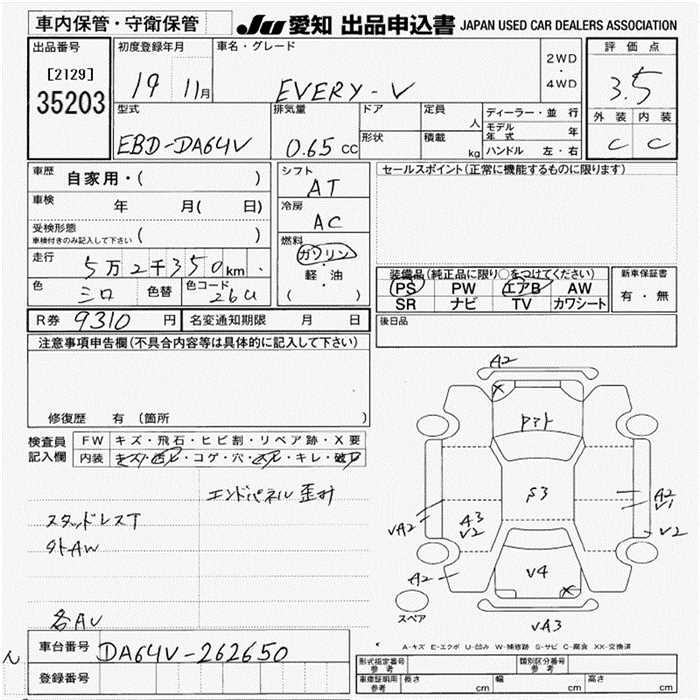 車内保管・守衛保管
JU 愛知 出品申込書 JAPAN USED CAR DEALERS ASSOCIATION
出品番号
[2129]
35203
初度登録年月
19 11月
車名・グレード
EVERY-V
2WD
・
4WD
評価点
3.5
外装 内装
C C
型式
EBD-DA64V
排気量
0.65 cc
ドア
形状
定員
人
積載
kg
ディーラー・並行
モデル年式 年
ハンドル 左・右
車歴 自家用・( )
車検 年 月( 日)
受検形態
車検付きのみ記入して下さい ( )
走行 5万2千350km
色 シロ 色替 色コード 26U
シフト
AT
冷房
AC
燃料
ガソリン
・
軽・油
( )
セールスポイント(正常に機能するものに限ります)
装備品(純正品に限り○をつけてください)
PS PW エアB AW
SR ナビ TV カワシート
新車保証書
有・無
後日品
R券 9310 円 名変通知期限 月 日
注意事項申告欄(不具合内容等は具体的に記入して下さい)
修復歴 有(箇所 )
検査員記入欄
FW キズ・飛石・ヒビ割・リペア跡・X要
内装 キズ・ヨゴレ・コゲ・穴・スレ・キレ・破レ
エンドパネル歪み
スタッドレスT
外AW
A2
X
S3
A2
V1
V2
A3
V2
VA2
A2
V4
X
VA3
スペア
A-キズ E-エクボ U-凹み W-補修跡 S-サビ C-腐食 XX-交換済
車台番号 DA64V-262650
登録番号
形式指定番号 参考
類別区分番号 参考
車庫証明用 参考 長さ cm 幅 cm 高さ cm